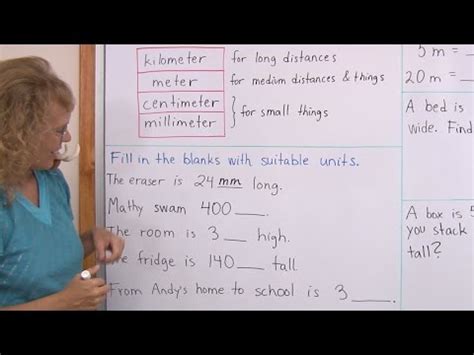 kilometer for long distances
meter for medium distances & things
centimeter
millimeter
} for small things
Fill in the blanks with suitable units.
The eraser is 24 mm long.
Mathy swam 400 ___.
The room is 3 ___ high.
fridge is 140 ___ tall
From Andy's home to school is 3 ___.
5 m =
20 m =
A bed is
wide. Find
A box is 5
you stack
tall?